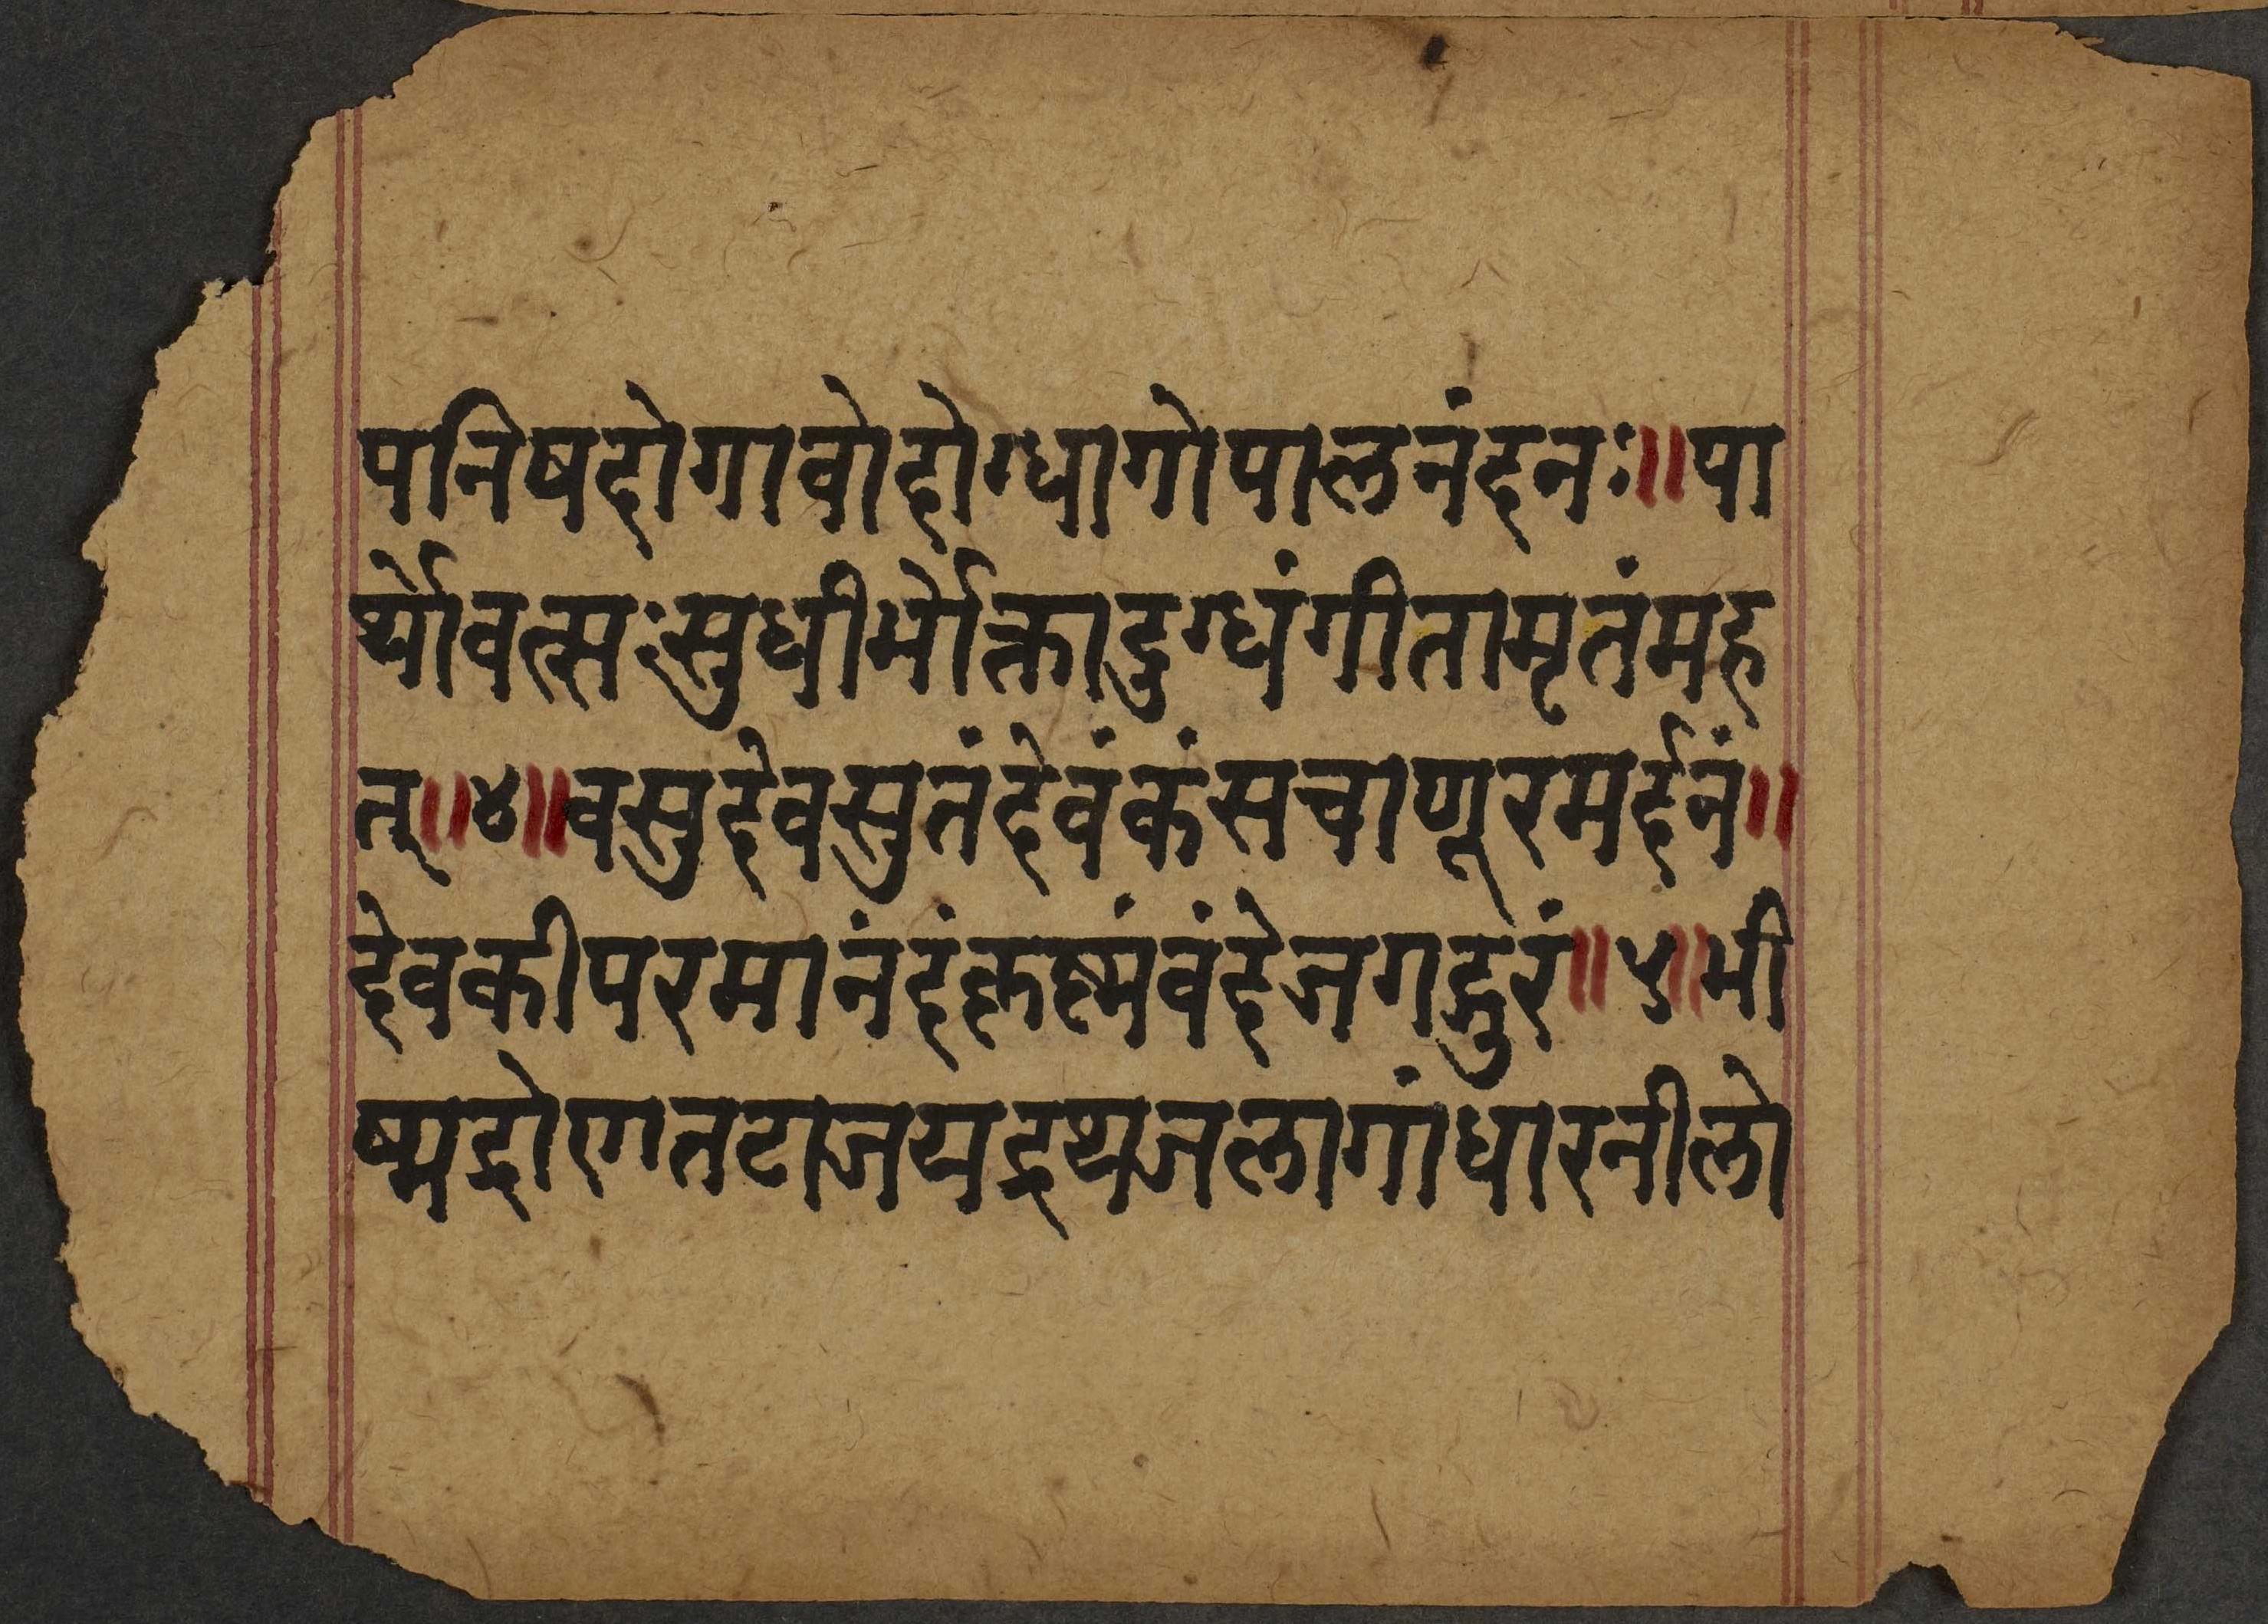 पनिषदोगावोदोग्धागोपालनंदनः॥पा
र्थोवत्सःसुधीर्भोक्तादुग्धंगीतामृतंमह
त्॥४॥वसुदेवसुतंदेवंकंसचाणूरमर्दनं॥
देवकीपरमानंदंकृष्णंवंदेजगद्गुरं॥५॥भी
ष्मद्रोणतटाजयद्रथजलागांधारनीलो